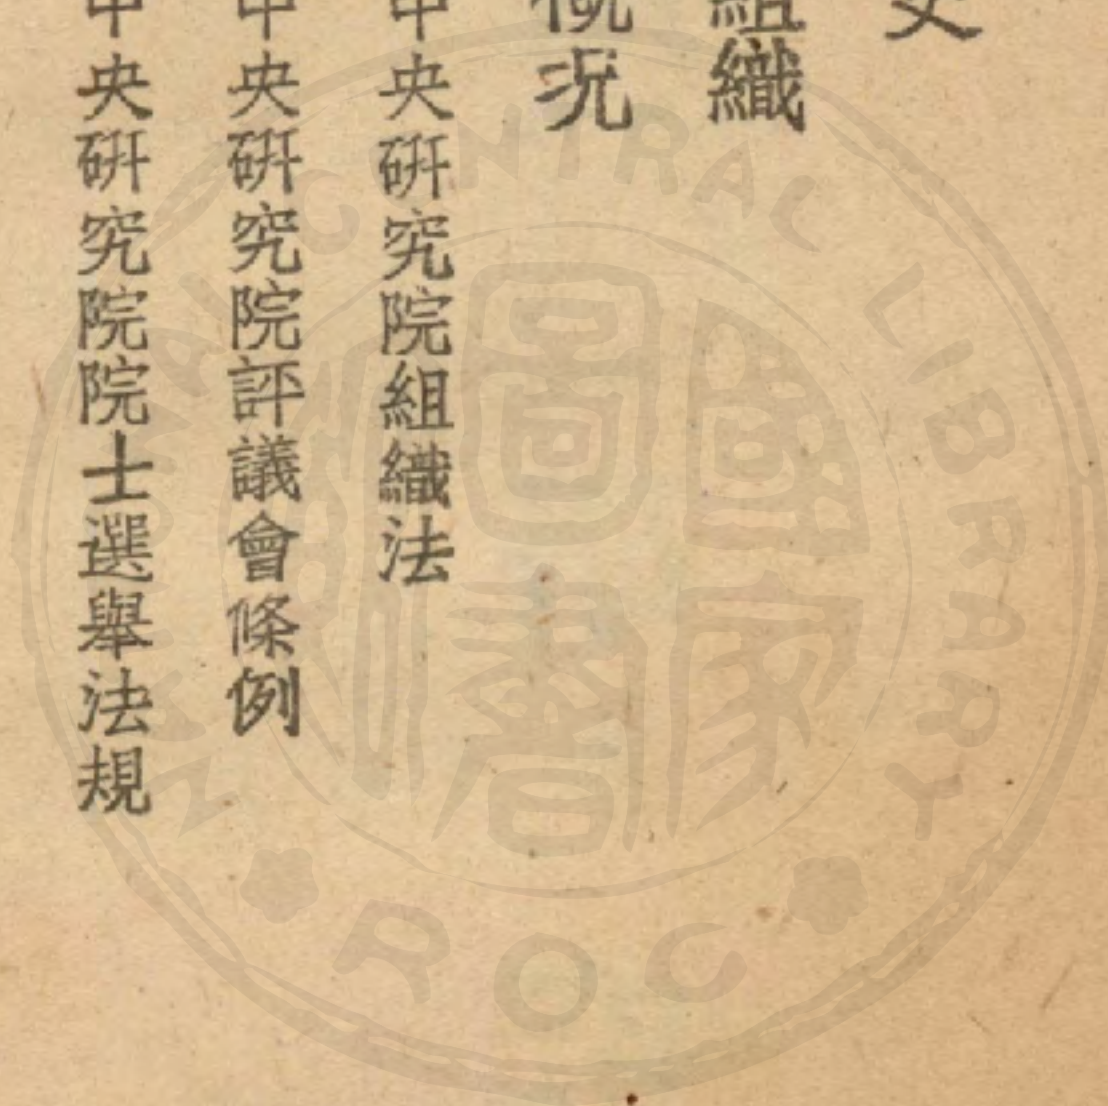 史
組織
概況
中央研究院組織法
中央研究院評議會條例
中央研究院院士選舉法規
NATIONAL CENTRAL LIBRARY
國家圖書
ROC